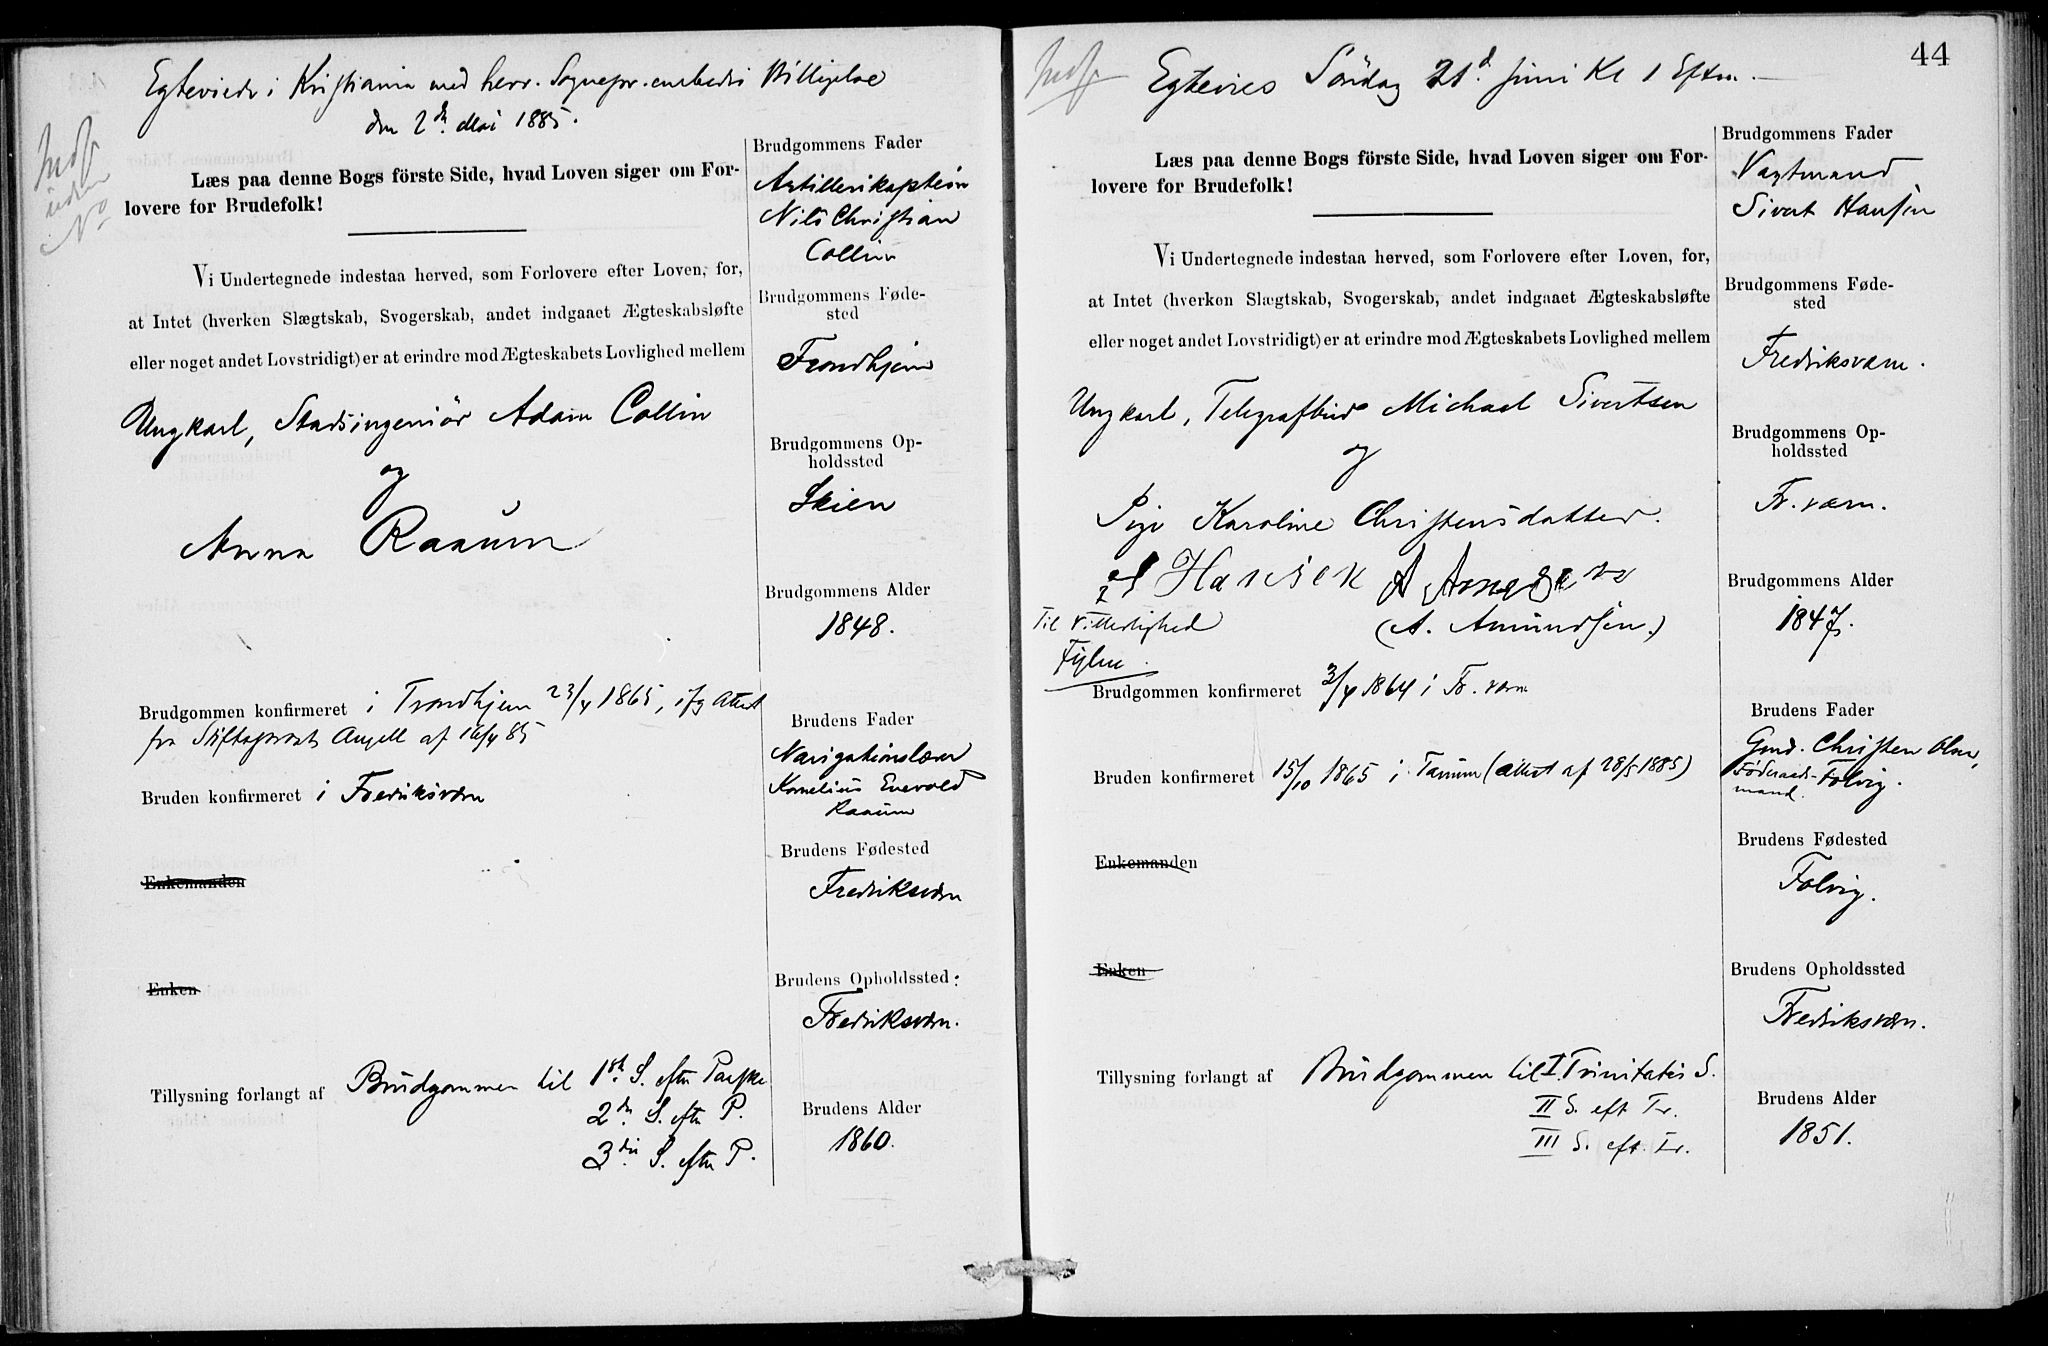 Egteviede i Kristiania med herv. Sognepr.embeds Billigelse
den 2den Mai 1885.
Indf
uden
No
Læs paa denne Bogs förste Side, hvad Loven siger om For-
lovere for Brudefolk!
Vi Undertegnede indestaa herved, som Forlovere efter Loven, for,
at Intet (hverken Slægtskab, Svogerskab, andet indgaaet Ægteskabsløfte
eller noget andet Lovstridigt) er at erindre mod Ægteskabets Lovlighed mellem
Ungkarl, Stadsingeniör Adam Collin
og
Anna Raaum
Brudgommen konfirmeret i Trondhjem 23/4 1865, ifg Attest
fra Stiftsprovst Angell af 16/4 85
Bruden konfirmeret i Fredriksværn
Enkemanden
Enken
Tillysning forlangt af Brudgommen til 1ste S. efter Paaske
2den S. efter P.
3die S. efter P.
Brudgommens Fader
Artillerikaptein
Nils Christian
Collin
Brudgommens Føde-
sted
Trondhjem
Brudgommens Op-
holdssted
Skien
Brudgommens Alder
1848.
Brudens Fader
Navigationslærer
Kornelius Enevold
Raaum
Brudens Fødested
Fredriksværn
Brudens Opholdssted:
Fredriksværn.
Brudens Alder
1860.
44
Indf
Egtevies Søndag 21d Juni Kl 1 Eftm.
Læs paa denne Bogs förste Side, hvad Loven siger om For-
lovere for Brudefolk!
Vi Undertegnede indestaa herved, som Forlovere efter Loven, for,
at Intet (hverken Slægtskab, Svogerskab, andet indgaaet Ægteskabsløfte
eller noget andet Lovstridigt) er at erindre mod Ægteskabets Lovlighed mellem
Ungkarl, Telegrafbud Michael Sivertsen
og
Pige Karoline Christensdatter.
Hansen A
Til Vitterlighed (A. Amundsen.)
Brudgommen konfirmeret 3/4 1864 i Fr.værn
Bruden konfirmeret 15/10 1865 i Tanum (Attest af 28/5 1885)
Enkemanden
Enken
Tillysning forlangt af Brudgommen til I. Trinitatis S.
II S. eft Tr.
III S. eft. Tr.
Brudgommens Fader
Vagtmand
Sivert Hansen
Brudgommens Føde-
sted
Fredriksværn.
Brudgommens Op-
holdssted
Fr.værn.
Brudgommens Alder
1847.
Brudens Fader
Gmd. Christen Olsen,
Føderaads- Folvig.
mand.
Brudens Fødested
Folvig.
Brudens Opholdssted
Fredriksværn.
Brudens Alder
1851.